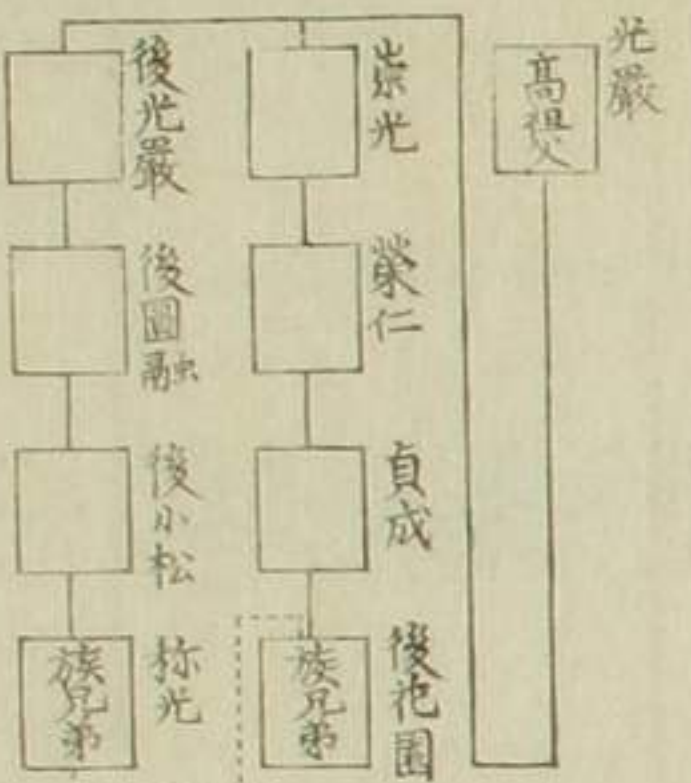 光嚴
高祖父
崇光
榮仁
貞成
後花園
族兄弟
後光嚴
後圓融
後小松
称光
族兄弟